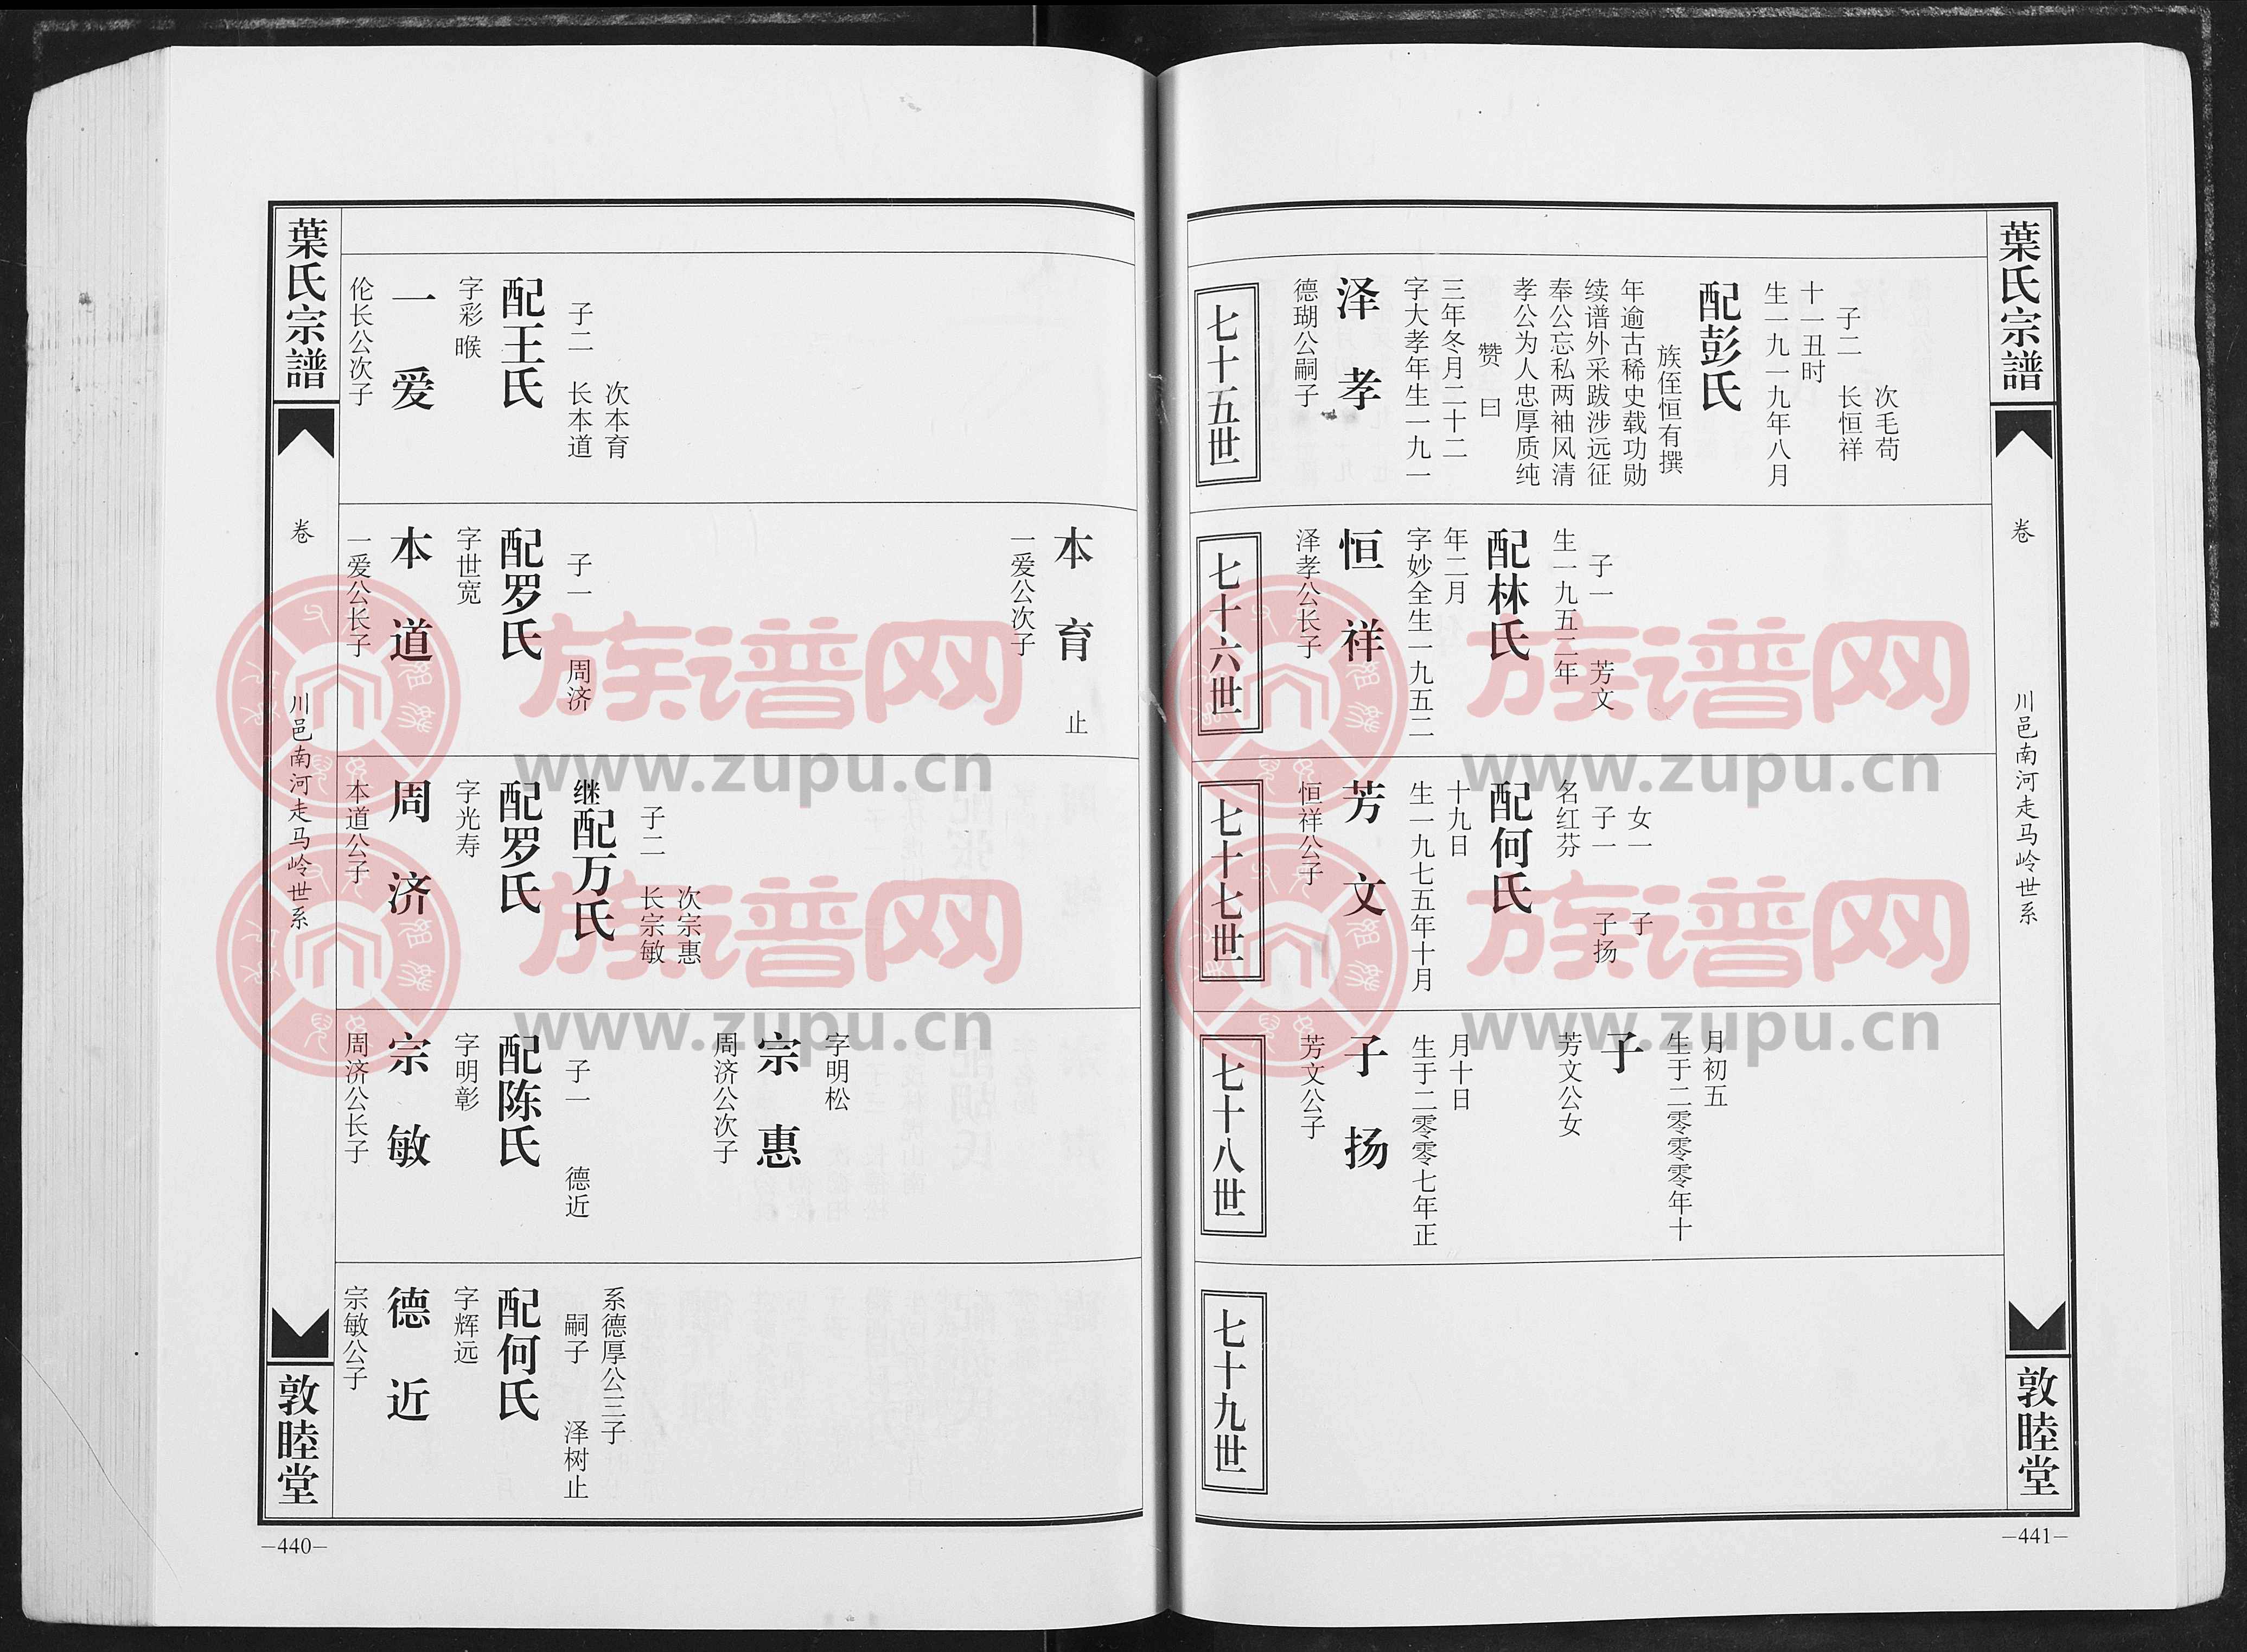 葉氏宗譜
卷
川邑南河走马岭世系
敦睦堂
—440—
伦长公次子
一爱
字彩 睺
配王氏
子二 长本道
次本育
一爱公长子
本道
字世宽
配罗氏
子一 周济
一爱公次子
本育 止
本道公子
周济
字光寿
配罗氏
继配万氏
子二 长宗敏
次宗惠
周济公长子
宗敏
字明彰
配陈氏
子一 德近
周济公次子
宗惠
字明松
宗敏公子
德近
字辉远
配何氏
嗣子 泽树止
系德厚公三子
七十五世
德瑚公嗣子
泽孝
字大孝年生一九一
三年冬月二十二
赞曰
孝公为人忠厚质纯
奉公忘私两袖风清
续谱外采跋涉远征
年逾古稀史载功勋
族侄恒有撰
配彭氏
生一九一九年八月
十一丑时
子二 长恒祥
次毛苟
七十六世
泽孝公长子
恒祥
字妙全生一九五二
年二月
配林氏
生一九五二年
子一 芳文
七十七世
恒祥公子
芳文
生一九七五年十月
十九日
配何氏
名红芬
子一 子扬
女一 子
七十八世
芳文公子
子扬
生于二零零七年正
月十日
芳文公女
子
生于二零零零年十
月初五
七十九世
葉氏宗譜
卷
川邑南河走马岭世系
敦睦堂
—441—
族谱网
www.zupu.cn
族谱网
www.zupu.cn
族谱网
www.zupu.cn
族谱网
www.zupu.cn